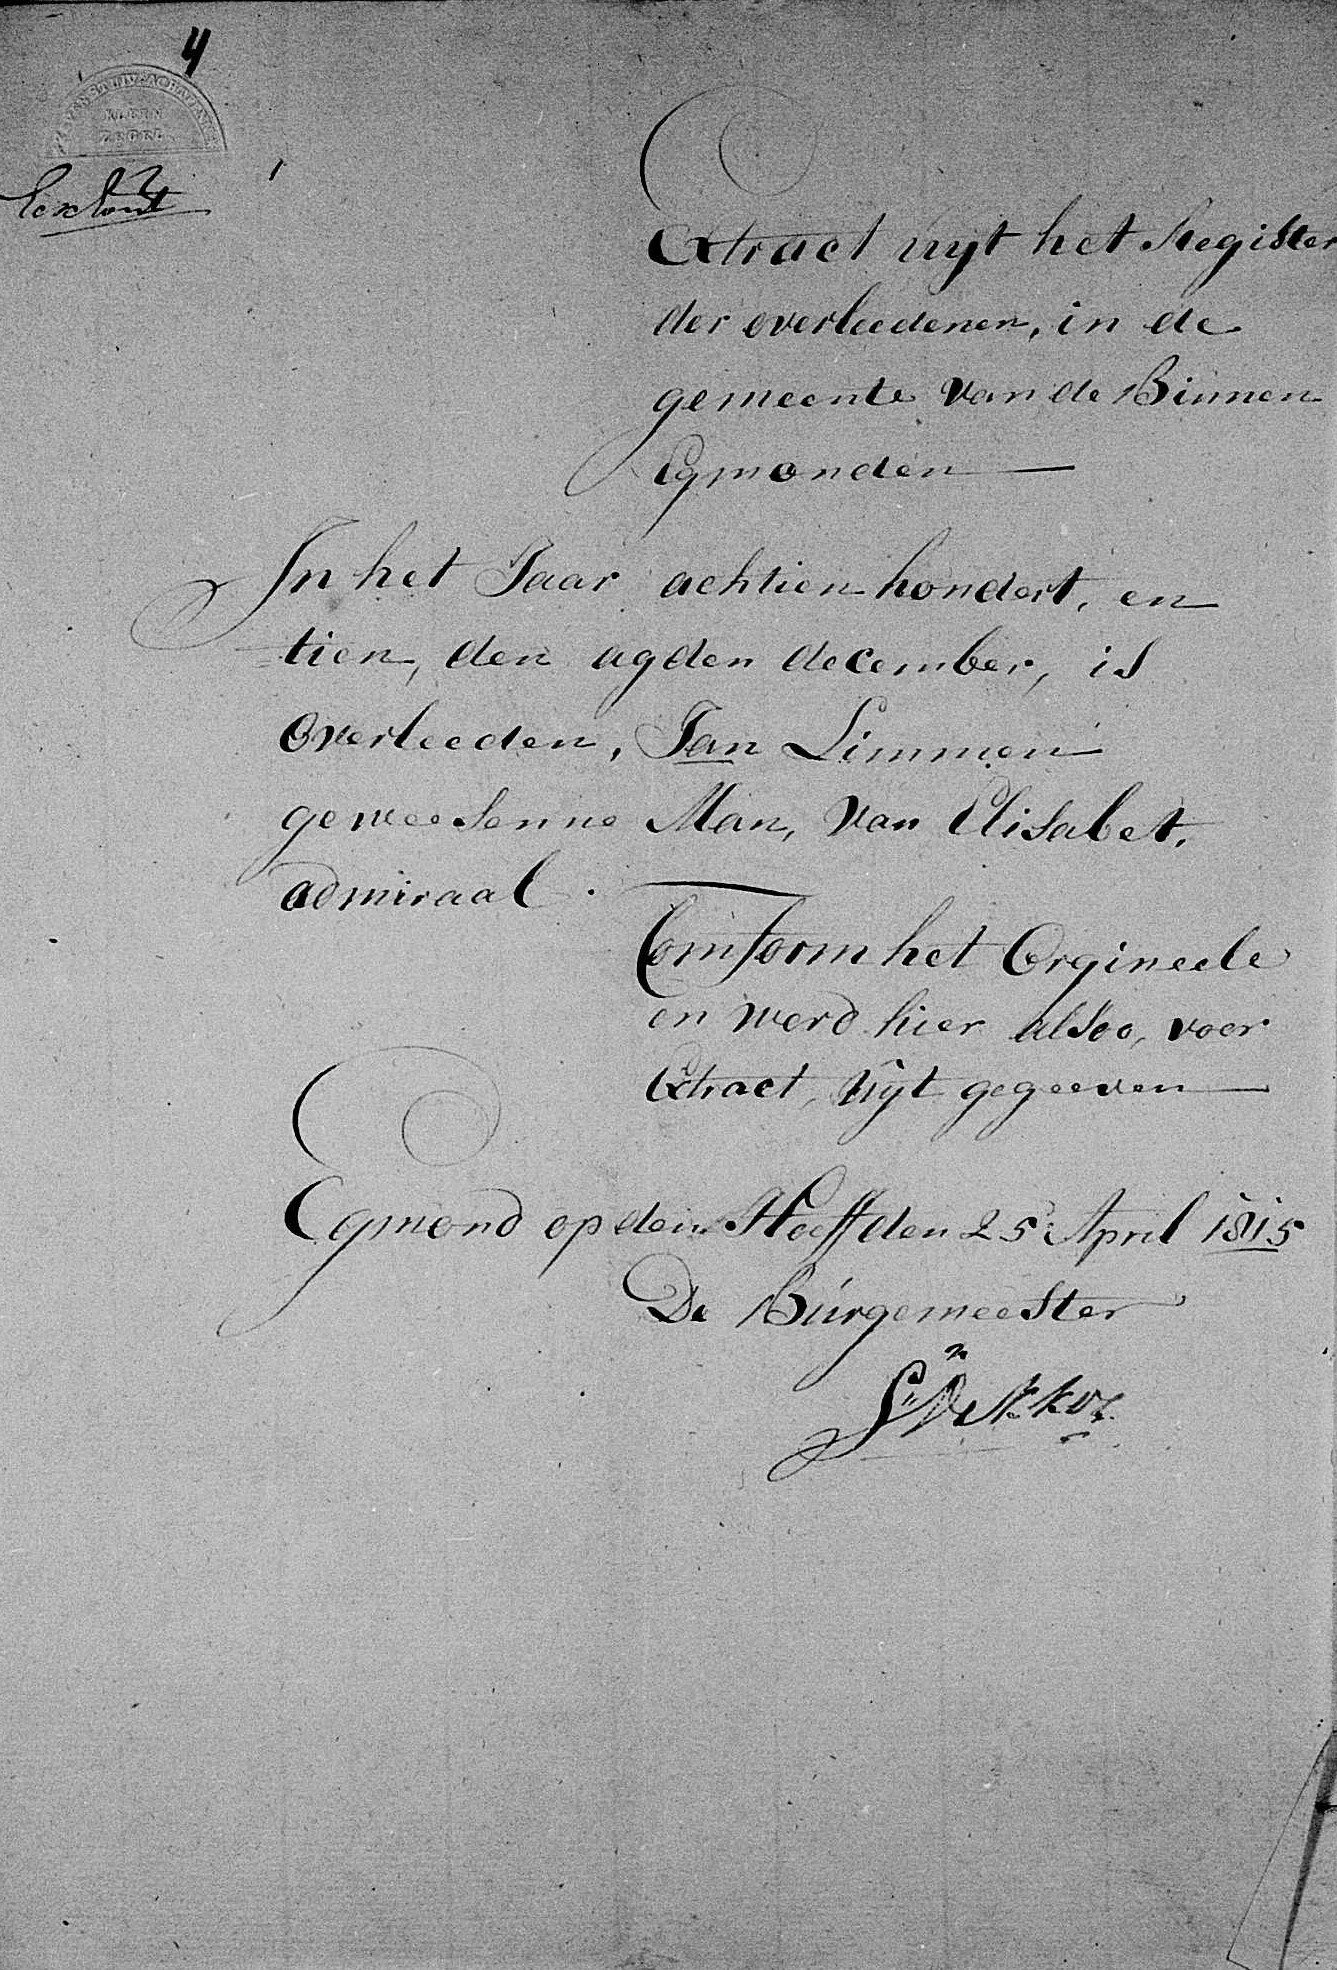 4
KLEIN
ZEGEL
Extract uyt het Register
der overleedenen, in de
gemeente van de Binnen
Egmonden
In het Jaar achtien hondert, en
tien, den agden december, is
overleeden, Jan Limmen
geweesenne Man, van Elisabet,
admiraal.
Comform het Orgineele
en werd hier alsoo, voor
Extract, uyt gegeeven
Egmond op den Hoeff den 25 April 1815
De Burgemeester